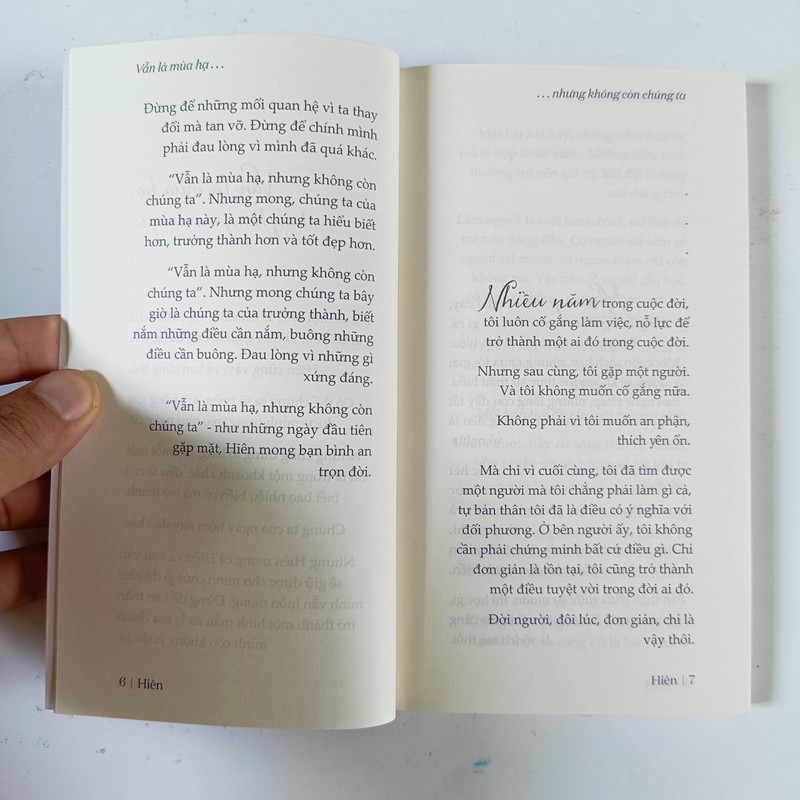 Vẫn là mùa hạ...
Đừng để những mối quan hệ vì ta thay
đổi mà tan vỡ. Đừng để chính mình
phải đau lòng vì mình đã quá khác.
“Vẫn là mùa hạ, nhưng không còn
chúng ta”. Nhưng mong, chúng ta của
mùa hạ này, là một chúng ta hiểu biết
hơn, trưởng thành hơn và tốt đẹp hơn.
“Vẫn là mùa hạ, nhưng không còn
chúng ta”. Nhưng mong chúng ta bây
giờ là chúng ta của trưởng thành, biết
nắm những điều cần nắm, buông những
điều cần buông. Đau lòng vì những gì
xứng đáng.
“Vẫn là mùa hạ, nhưng không còn
chúng ta” - như những ngày đầu tiên
gặp mặt, Hiên mong bạn bình an
trọn đời.
6 | Hiên
...nhưng không còn chúng ta
Nhiều năm trong cuộc đời,
tôi luôn cố gắng làm việc, nỗ lực để
trở thành một ai đó trong cuộc đời.
Nhưng sau cùng, tôi gặp một người.
Và tôi không muốn cố gắng nữa.
Không phải vì tôi muốn an phận,
thích yên ổn.
Mà chỉ vì cuối cùng, tôi đã tìm được
một người mà tôi chẳng phải làm gì cả,
tự bản thân tôi đã là điều có ý nghĩa với
đối phương. Ở bên người ấy, tôi không
cần phải chứng minh bất cứ điều gì. Chỉ
đơn giản là tồn tại, tôi cũng trở thành
một điều tuyệt vời trong đời ai đó.
Đời người, đôi lúc, đơn giản, chỉ là
vậy thôi.
Hiên | 7